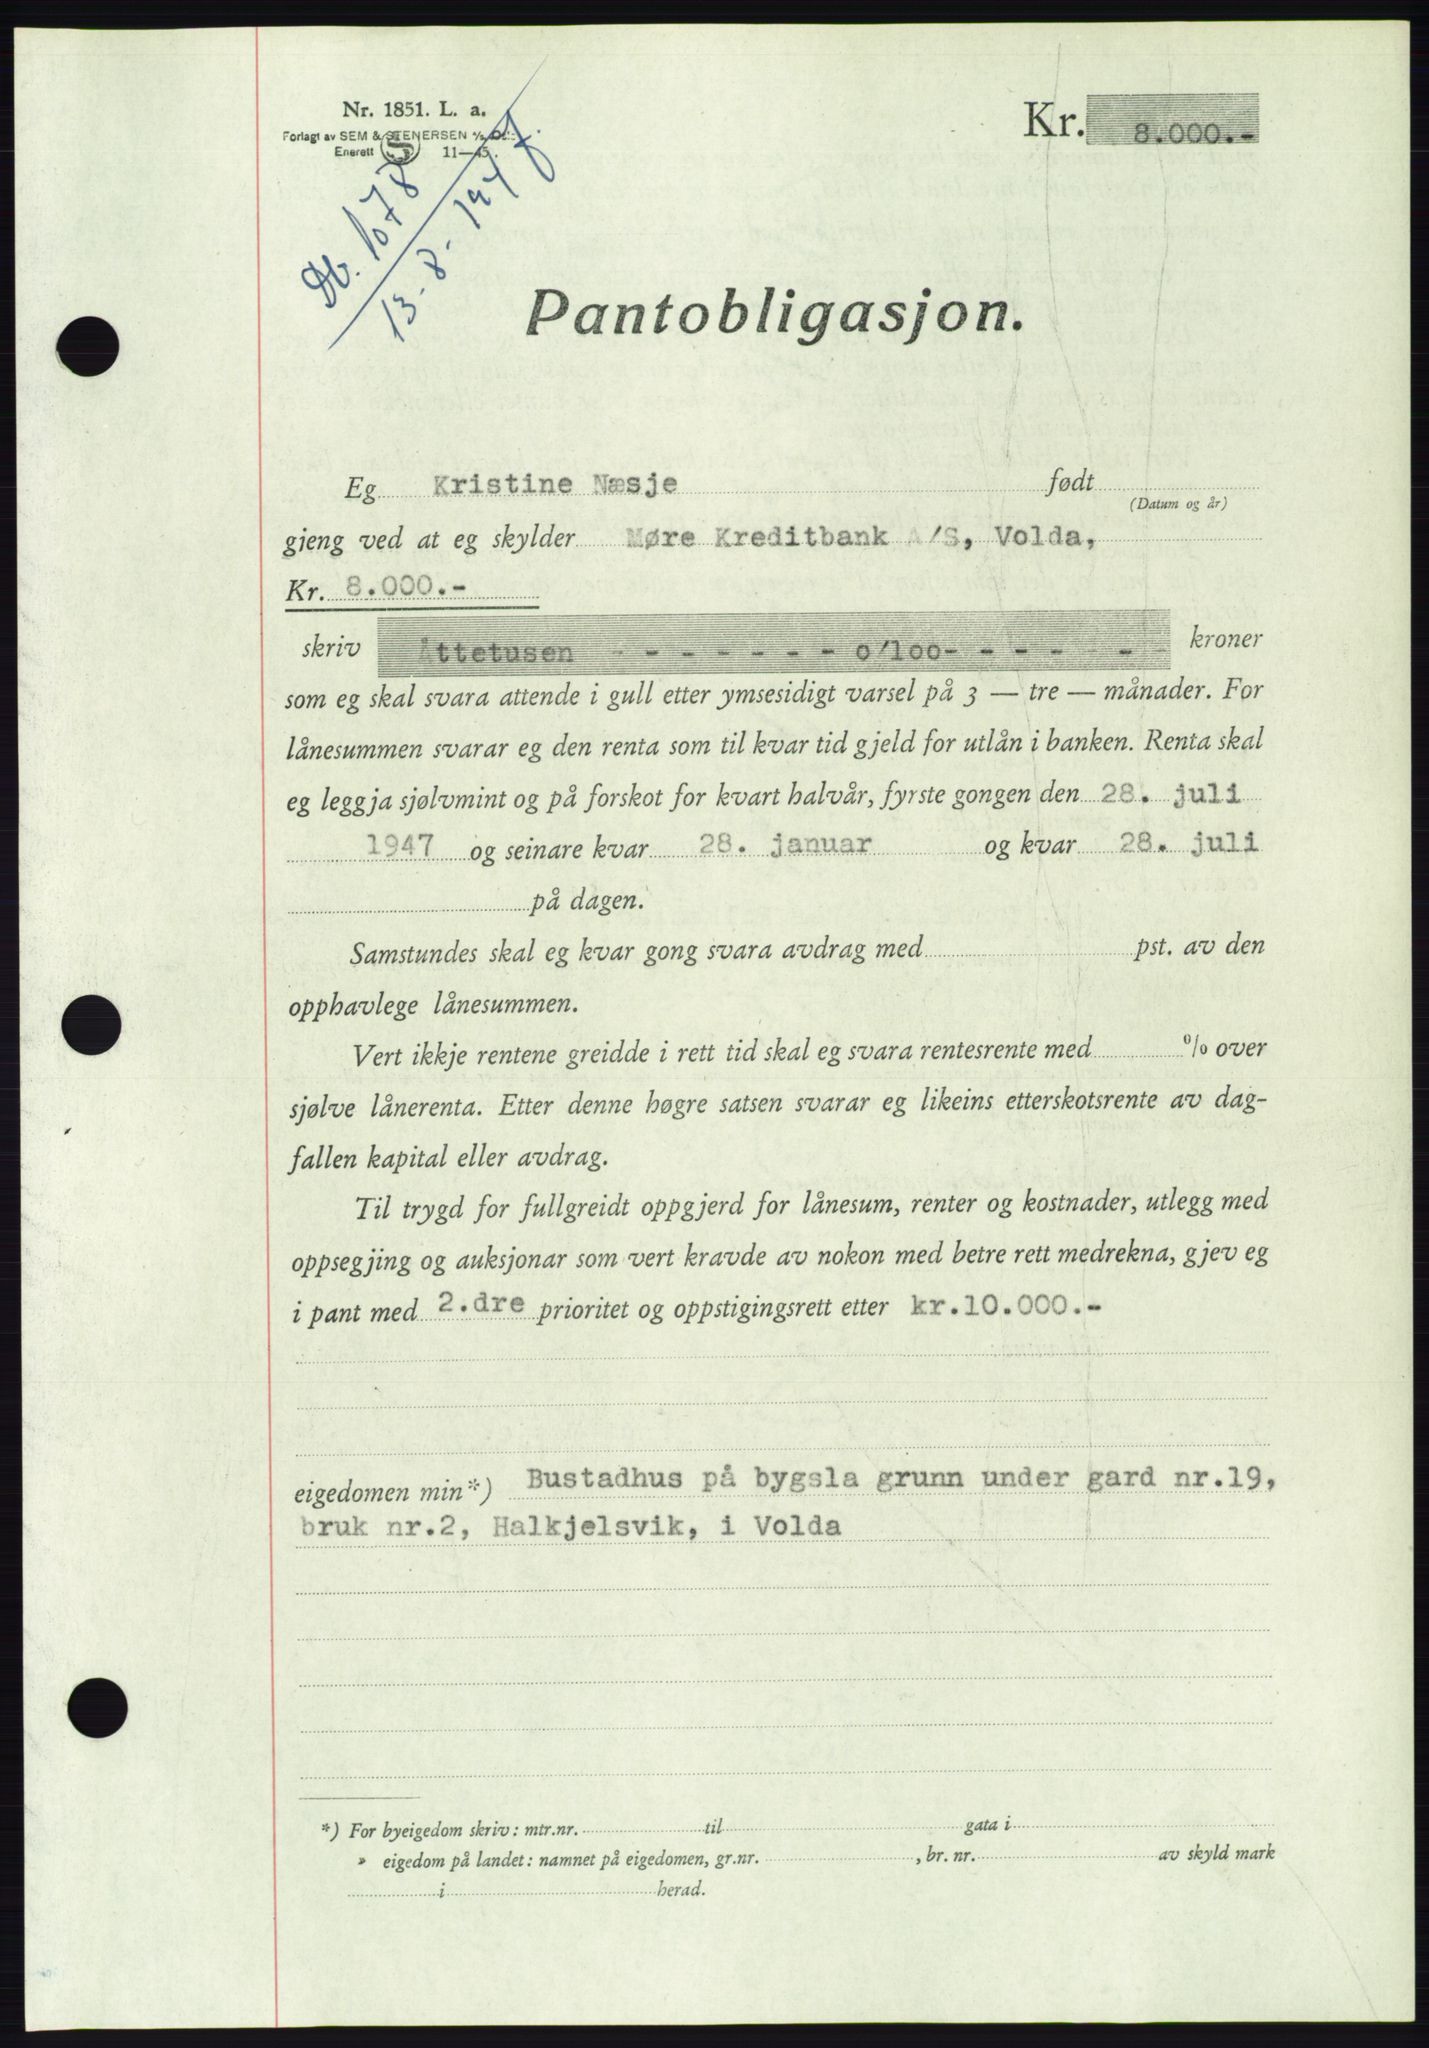 Nr. 1851. L. a.
Forlagt av SEM & STENERSEN A/S, O
Enerett 11—45.
Db. 1078
13-8-1947
Kr. 8.000.-
Pantobligasjon.
Eg Kristine Næsje født
(Datum og år)
gjeng ved at eg skylder Møre Kreditbank A/S, Volda,
Kr. 8.000.-
skriv Åttetusen - - - - - - - 0/100- - - - - kroner
som eg skal svara attende i gull etter ymsesidigt varsel på 3 — tre — månader. For
lånesummen svarar eg den renta som til kvar tid gjeld for utlån i banken. Renta skal
eg leggja sjølvmint og på forskot for kvart halvår, fyrste gongen den 28. juli
1947 og seinare kvar 28. januar og kvar 28. juli
på dagen.
Samstundes skal eg kvar gong svara avdrag med pst. av den
opphavlege lånesummen.
Vert ikkje rentene greidde i rett tid skal eg svara rentesrente med % over
sjølve lånerenta. Etter denne høgre satsen svarar eg likeins etterskotsrente av dag-
fallen kapital eller avdrag.
Til trygd for fullgreidt oppgjerd for lånesum, renter og kostnader, utlegg med
oppsegjing og auksjonar som vert kravde av nokon med betre rett medrekna, gjev eg
i pant med 2.dre prioritet og oppstigingsrett etter kr.10.000.-
eigedomen min*) Bustadhus på bygsla grunn under gard nr.19,
bruk nr.2, Halkjelsvik, i Volda
*) For byeigedom skriv: mtr.nr. til gata i
» eigedom på landet: namnet på eigedomen, gr.nr. , br. nr. av skyld mark
i herad.